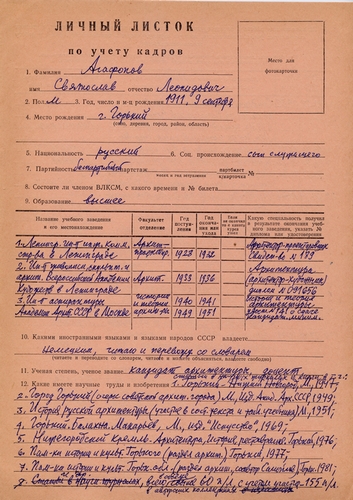 ЛИЧНЫЙ ЛИСТОК
по учету кадров
Место для фотокарточки
1. Фамилия Агафонов
имя Святослав отчество Леонидович
2. Пол М 3. Год, число и м-ц рождения 1911, 9 сентября
4. Место рождения г. Горький
(село, деревня, город, район, область)
5. Национальность русский 6. Соц. происхождение сын служащего
7. Партийность беспартийный партстаж партбилет кандкарточка №
8. Состоите ли членом ВЛКСМ, с какого времени и № билета
9. Образование высшее
Название учебного заведения и его местонахождение
Факультет или отделение
Год поступления
Год окончания или ухода
Если не окончил, то с какого курса ушел
Какую специальность получил в результате окончания учебного заведения, указать № диплома или удостоверения
1. Ленингр. Ин-т инж. Комм. стр-ва в Ленинграде 1928 1932
Свид-во № 189
2. Ин-т живописи, скульпт. и архит. Всероссийской Академии Художеств в Ленинграде Архит. 1933 1936
3. Ин-т аспирантуры Академии Архит. СССР в Москве 1940 1941
1949 1951
10. Какими иностранными языками и языками народов СССР владеете
Немецким, читаю и перевожу со словарем
(читаете и переводите со словарем, читаете и можете объясняться, владеете свободно)
11. Ученая степень, ученое звание кандидат архитектуры, доцент
12. Какие имеете научные труды и изобретения 1. Горький - Нижний Новгород, М., 1947 г.
2. Город Горький (очерк советской архит. города) М., изд. Акад. Арх. СССР, 1949;
3. История русской архитектуры (участие в сост. текста и ред. учебника) М., 1951;
4. Горький. Балахна. Макарьев, М., изд. "Искусство", 1969;
5. Нижегородский кремль. Архитектура, История, реставрация. Горький, 1976;
6. Пам-ки истории и культ. Горького (раздел архит.) Горький, 1977;
7. Пам-ки истории и культ. Горьк. обл. (раздел архит., Горький, 1981;
8. Статьи в